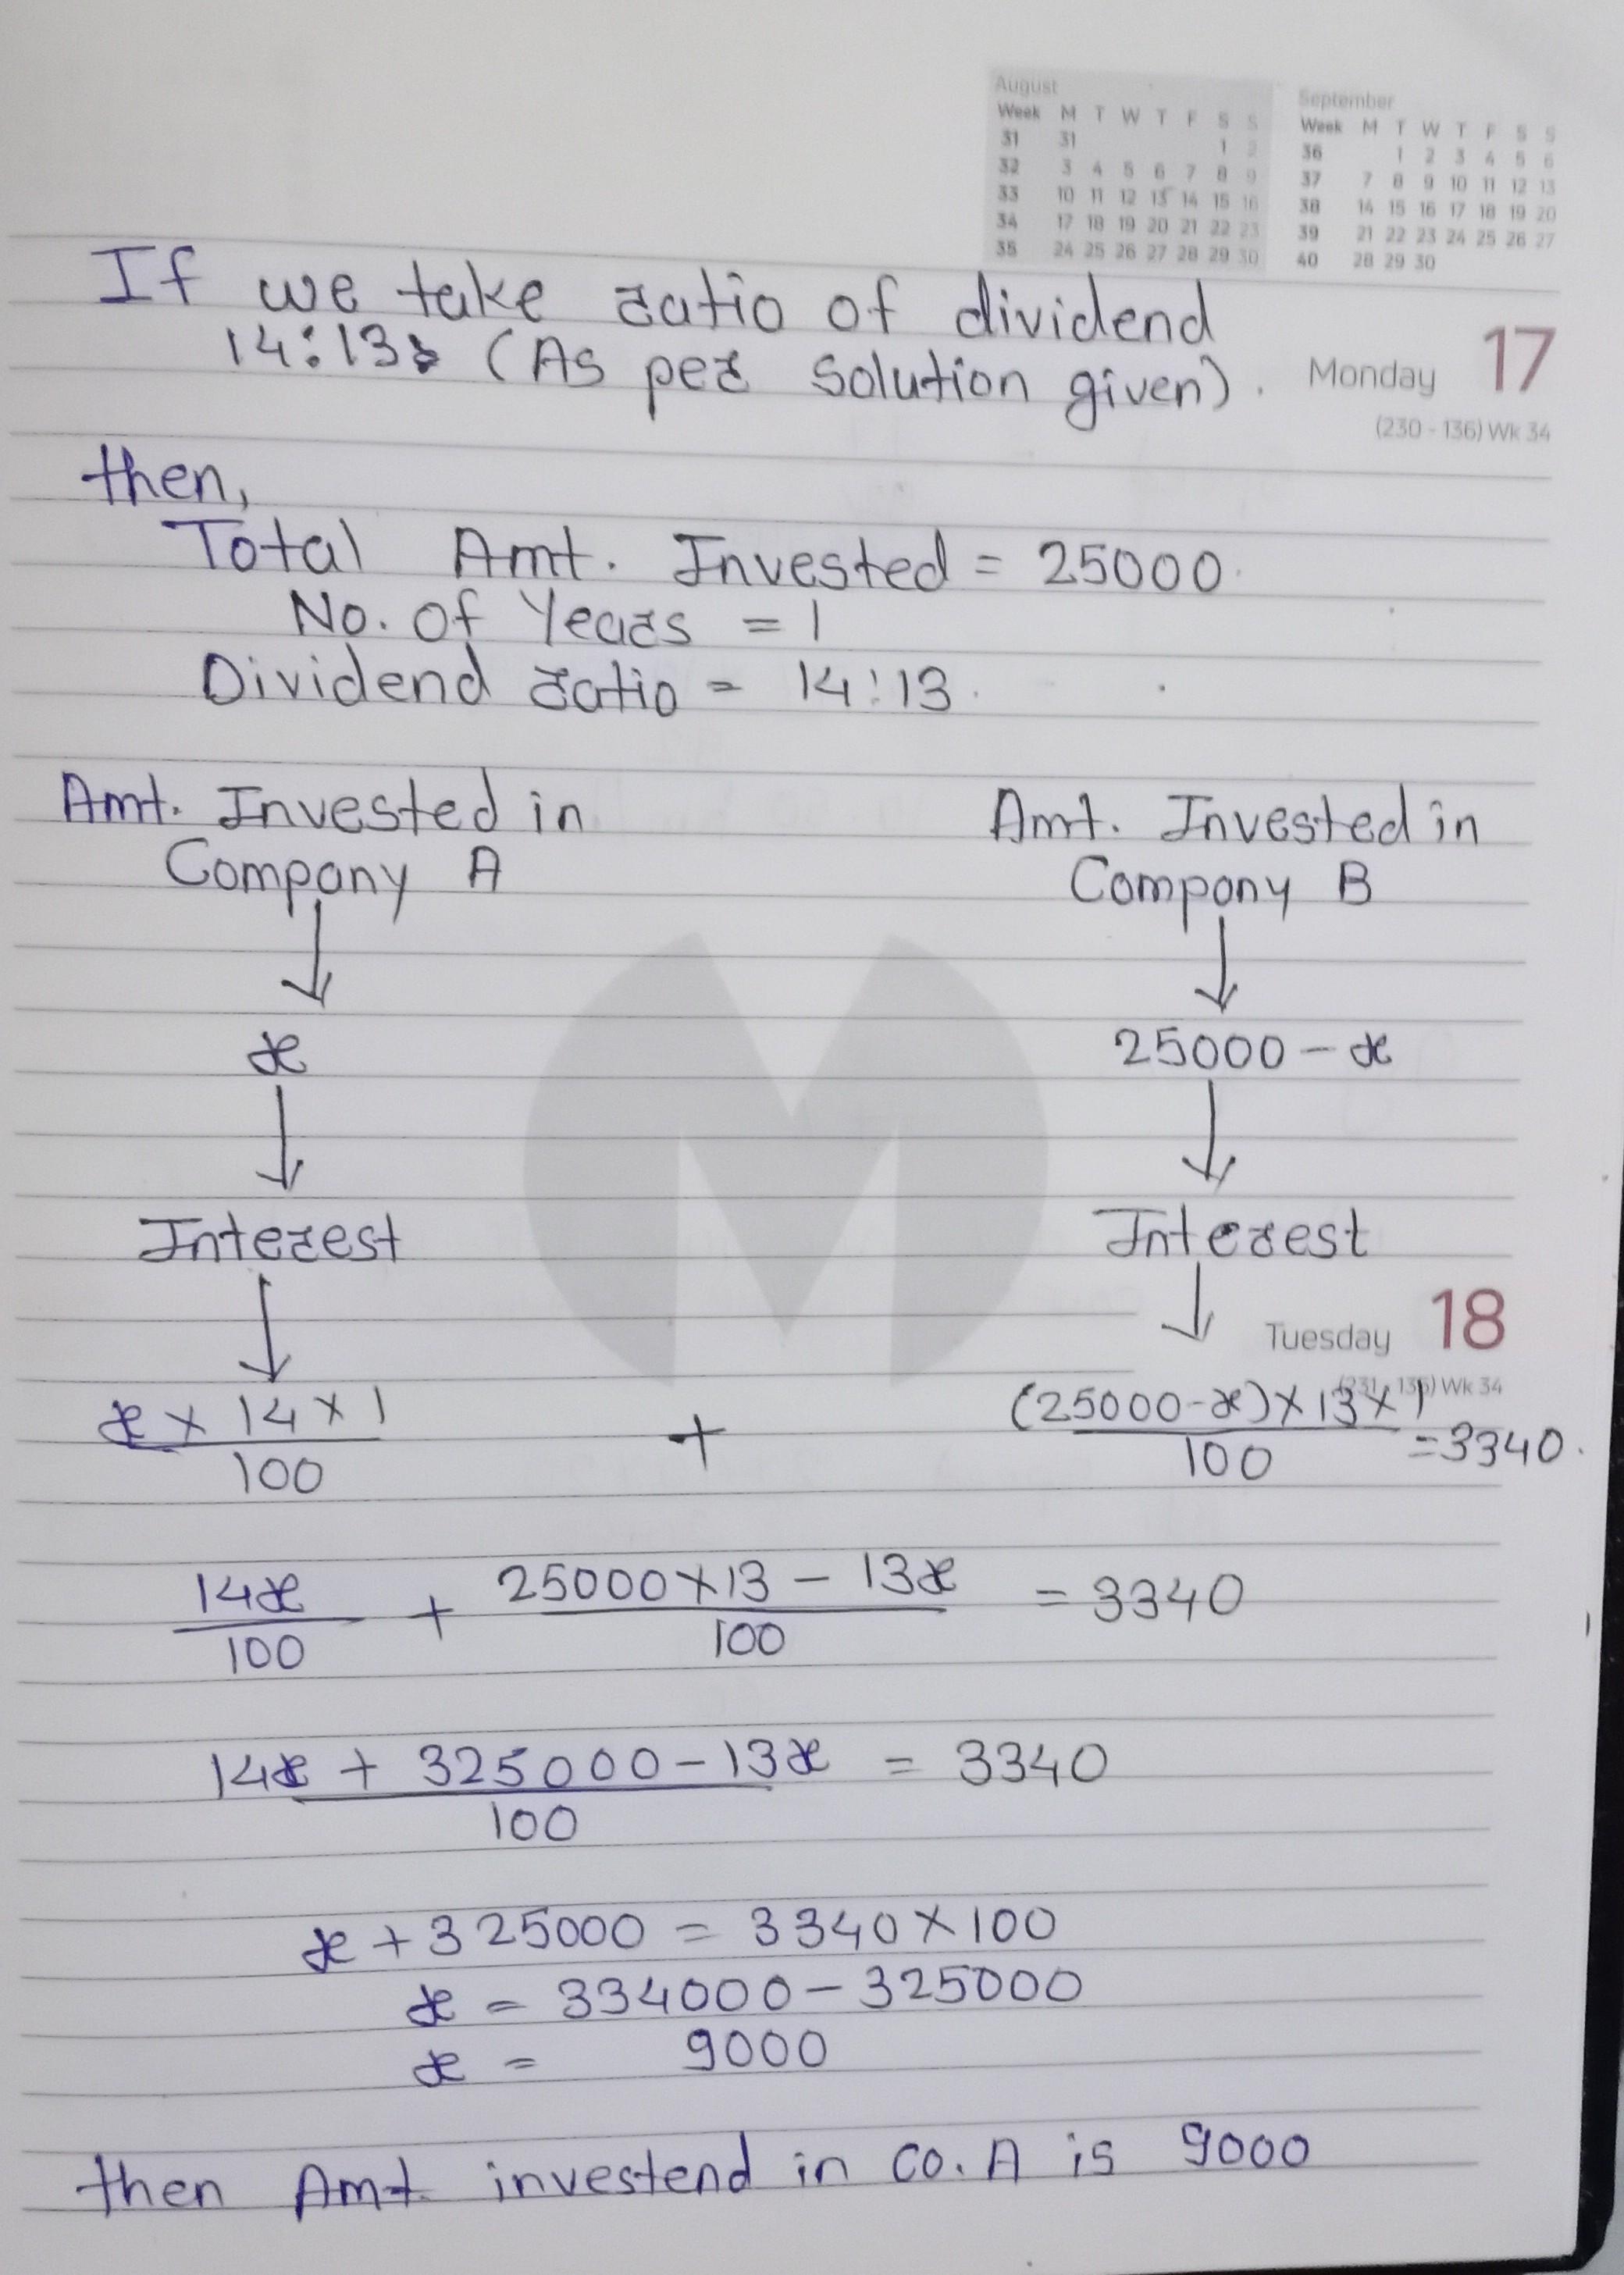 August
Week M T W T F S S
31 31 1 2
32 3 4 5 6 7 8 9
33 10 11 12 13 14 15 16
34 17 18 19 20 21 22 23
35 24 25 26 27 28 29 30
September
Week M T W T F S S
36 1 2 3 4 5 6
37 7 8 9 10 11 12 13
38 14 15 16 17 18 19 20
39 21 22 23 24 25 26 27
40 28 29 30
If we take ratio of dividend
14:13 (As per solution given).
Monday 17
(230 - 136) Wk 34
then,
Total Amt. Invested = 25000
No. of Years = 1
Dividend ratio = 14:13.
Amt. Invested in
Company A
Amt. Invested in
Company B
x
25000 - x
Interest
Interest
Tuesday 18
(231 - 135) Wk 34
x × 14 × 1 / 100 + (25000-x) × 13 × 1 / 100 = 3340.
14x / 100 + 25000×13 - 13x / 100 = 3340
14x + 325000 - 13x / 100 = 3340
x + 325000 = 3340 × 100
x = 334000 - 325000
x = 9000
then Amt. investend in co. A is 9000
M